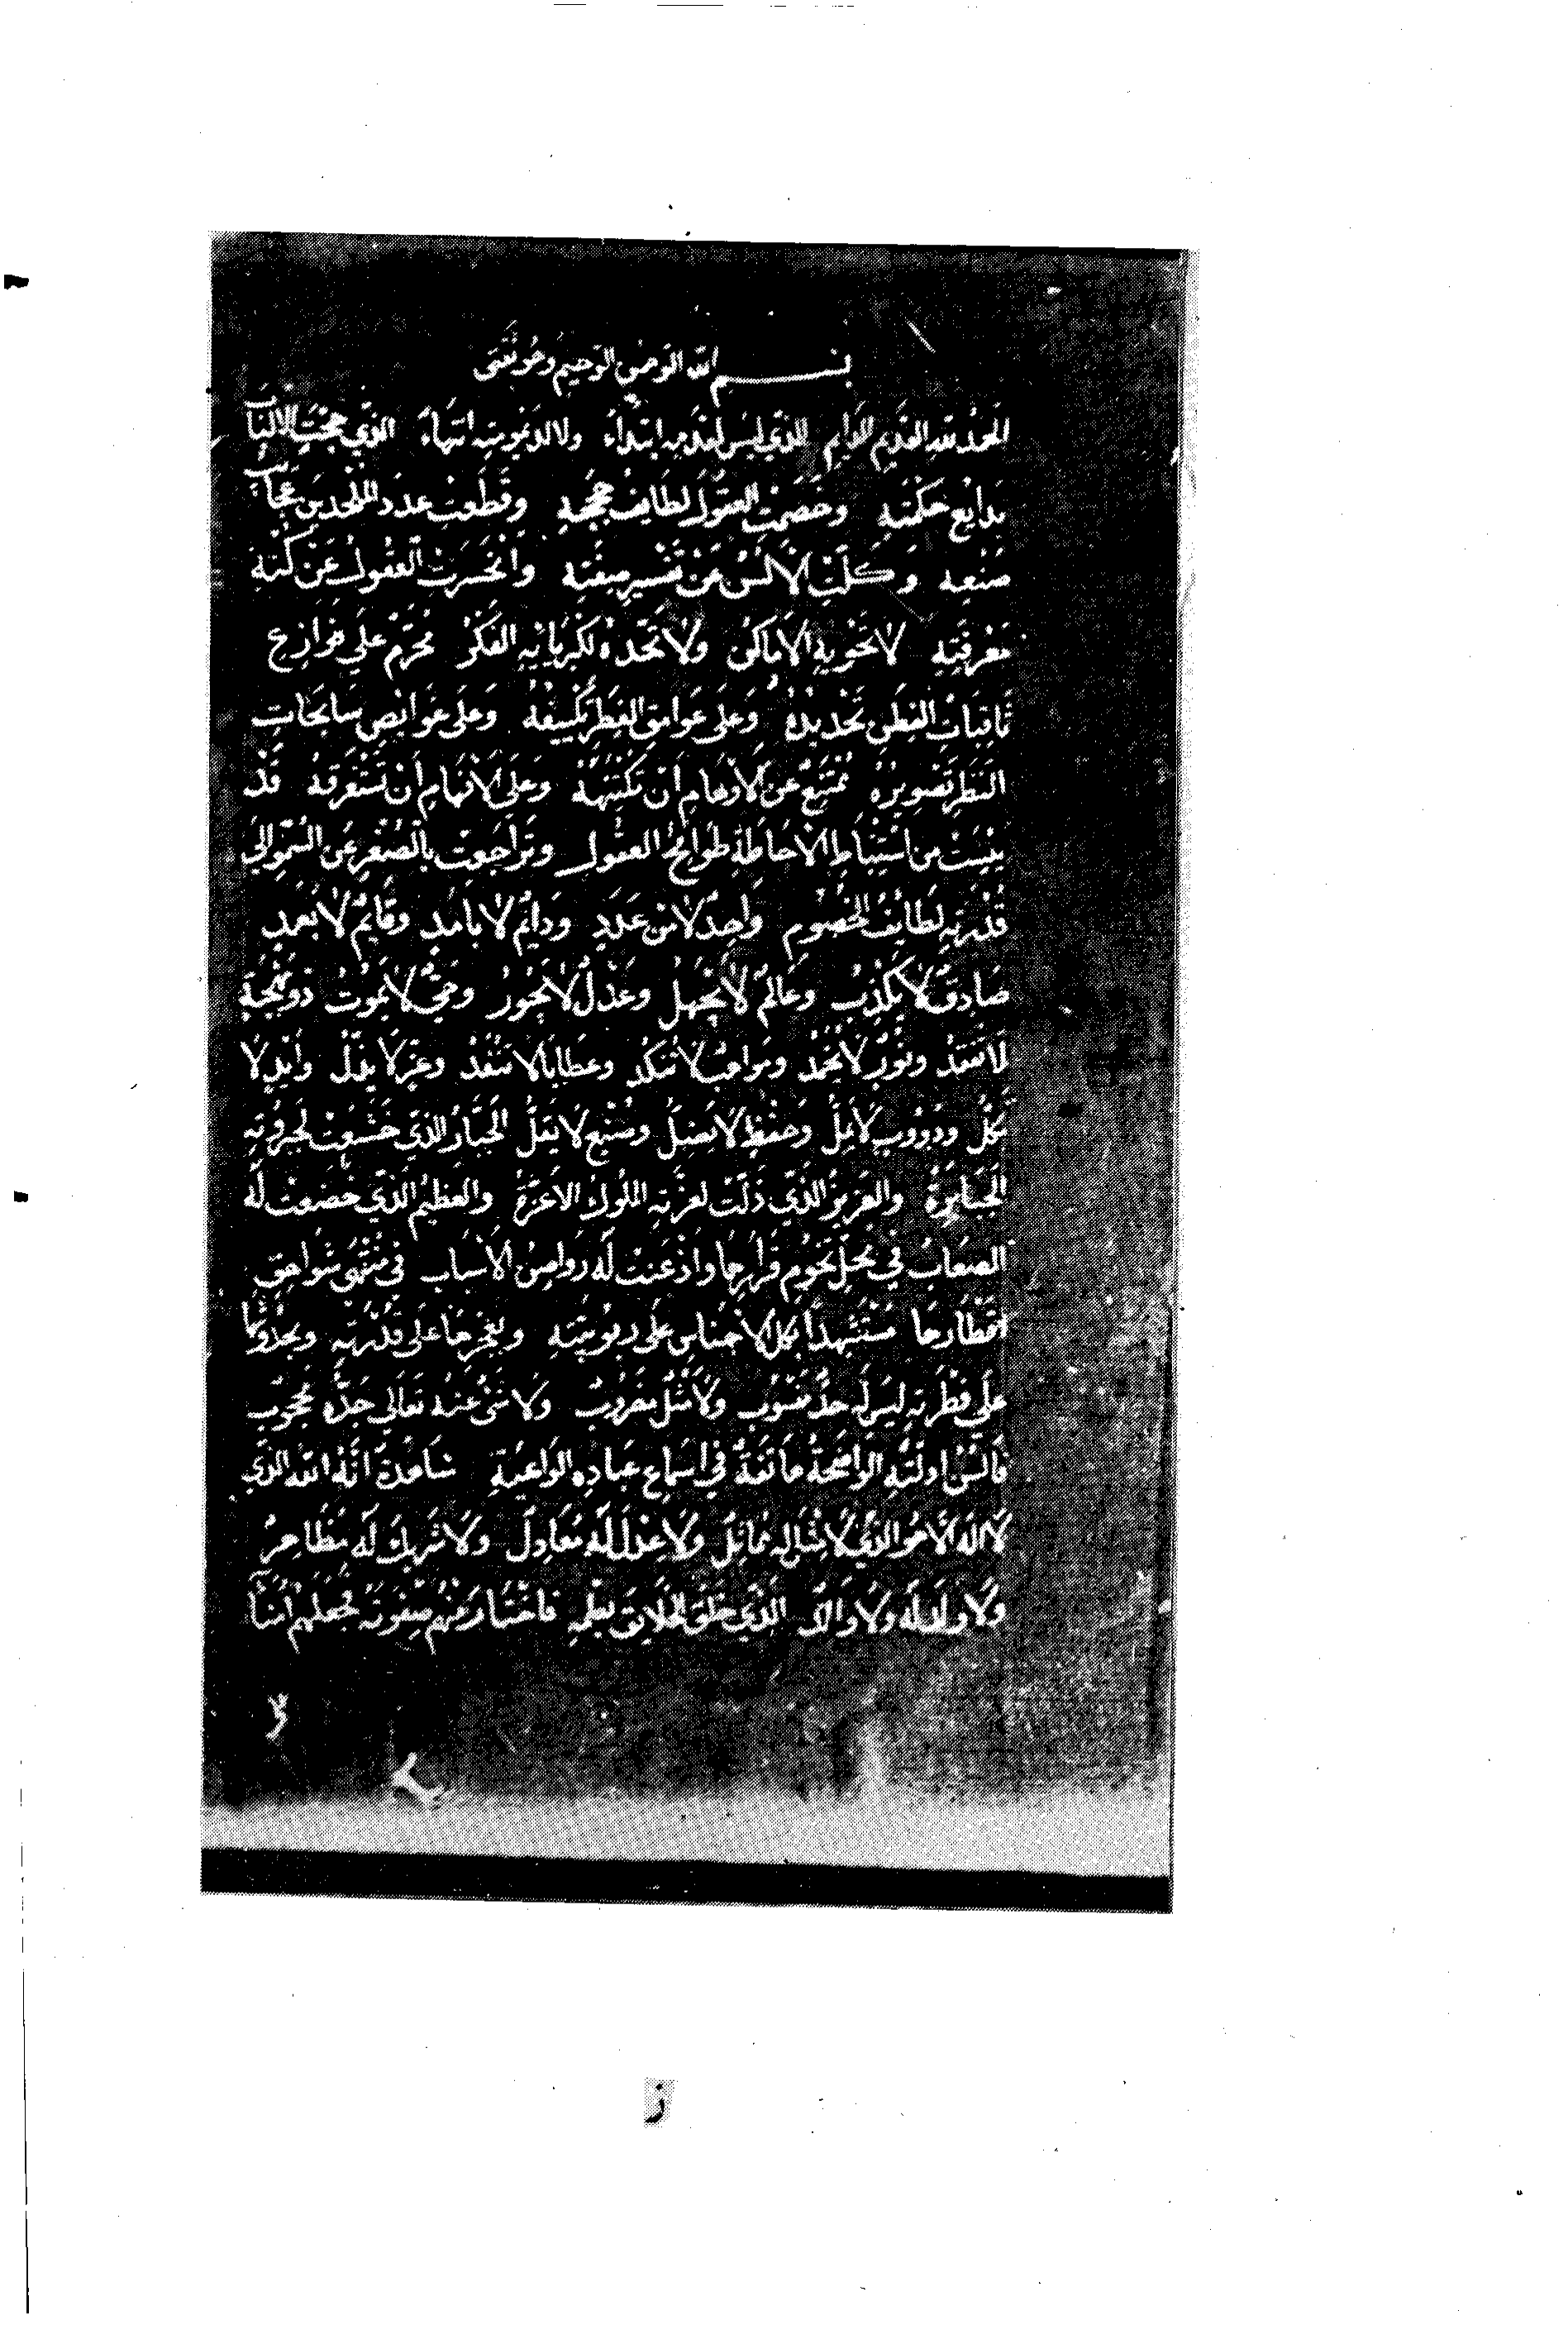 بســـم الله الرحمن الرحيم وهو ثقتى
الحمد لله القديم الدايم الذي ليس لقدمه ابتداء ولا لديموميته انتهاء الذي حجت الالباب
بدايع حكمته وخصمت العقول لطايف حججه وقطعت عذر الملحدين عجائب
صنعه وكلت الألسن عن تفسير صفته وانحسرت العقول عن كنه
معرفته لا تحويه الأماكن ولا تحده لكبريائه الفكر محرم على نوازع
ثاقبات الفطن تحديده وعلى عوامق الفطر تكييفه وعلى غوائص سابحات
النظر تصويره ممتنع عن الأوهام أن تكتنهه وعلى الافهام أن تستغرقه قد
يئست من استنباط الاحاطة به طوامح العقول وتراجعت بالصغر عن السمو إلى
قدرته لطايف الخصوم واحد لا من عدد ودايم لا بأمد وقايم لا بعمد
صادق لا يكذب وعالم لا يجهل وعدل لا يجور وحي لا يموت ذو بهجة
لا تنفد ونور لا يخمد ومواهب لا تنكد وعطايا لا تنفد وعز لا يذل وايد لا
يكل ودووب لا يمل وحفظ لا يضل وصنع لا يقل الجبار الذي خشعت لجبروته
الجبابرة والعزيز الذي ذلت لعزته الملوك الاعزة والعظيم الذي خضعت له
الصعاب في محل تخوم قرارها واذعنت له رواصن الأسباب في منتهى شواهق
أقطارها مستشهدا بكل الأجناس على ربوبيته وبعجزها على قدرته وبحدوثها
على فطرته ليس له حد منسوب ولا مثل مضروب ولا شئ عنه تعالى جده محجوب
فألسن ادلته الواضحة هاتفة في اسماع عباده الواعية شاهدة أنه الله الذي
لا اله الا هو الذي لا مثل له مماثل ولا عدل له معادل ولا شريك له مظاهر
ولا ولد له ولا والد الذي خلق الخلايق بعلمه فاختار منهم صفوته فجعلهم أمنا
ز